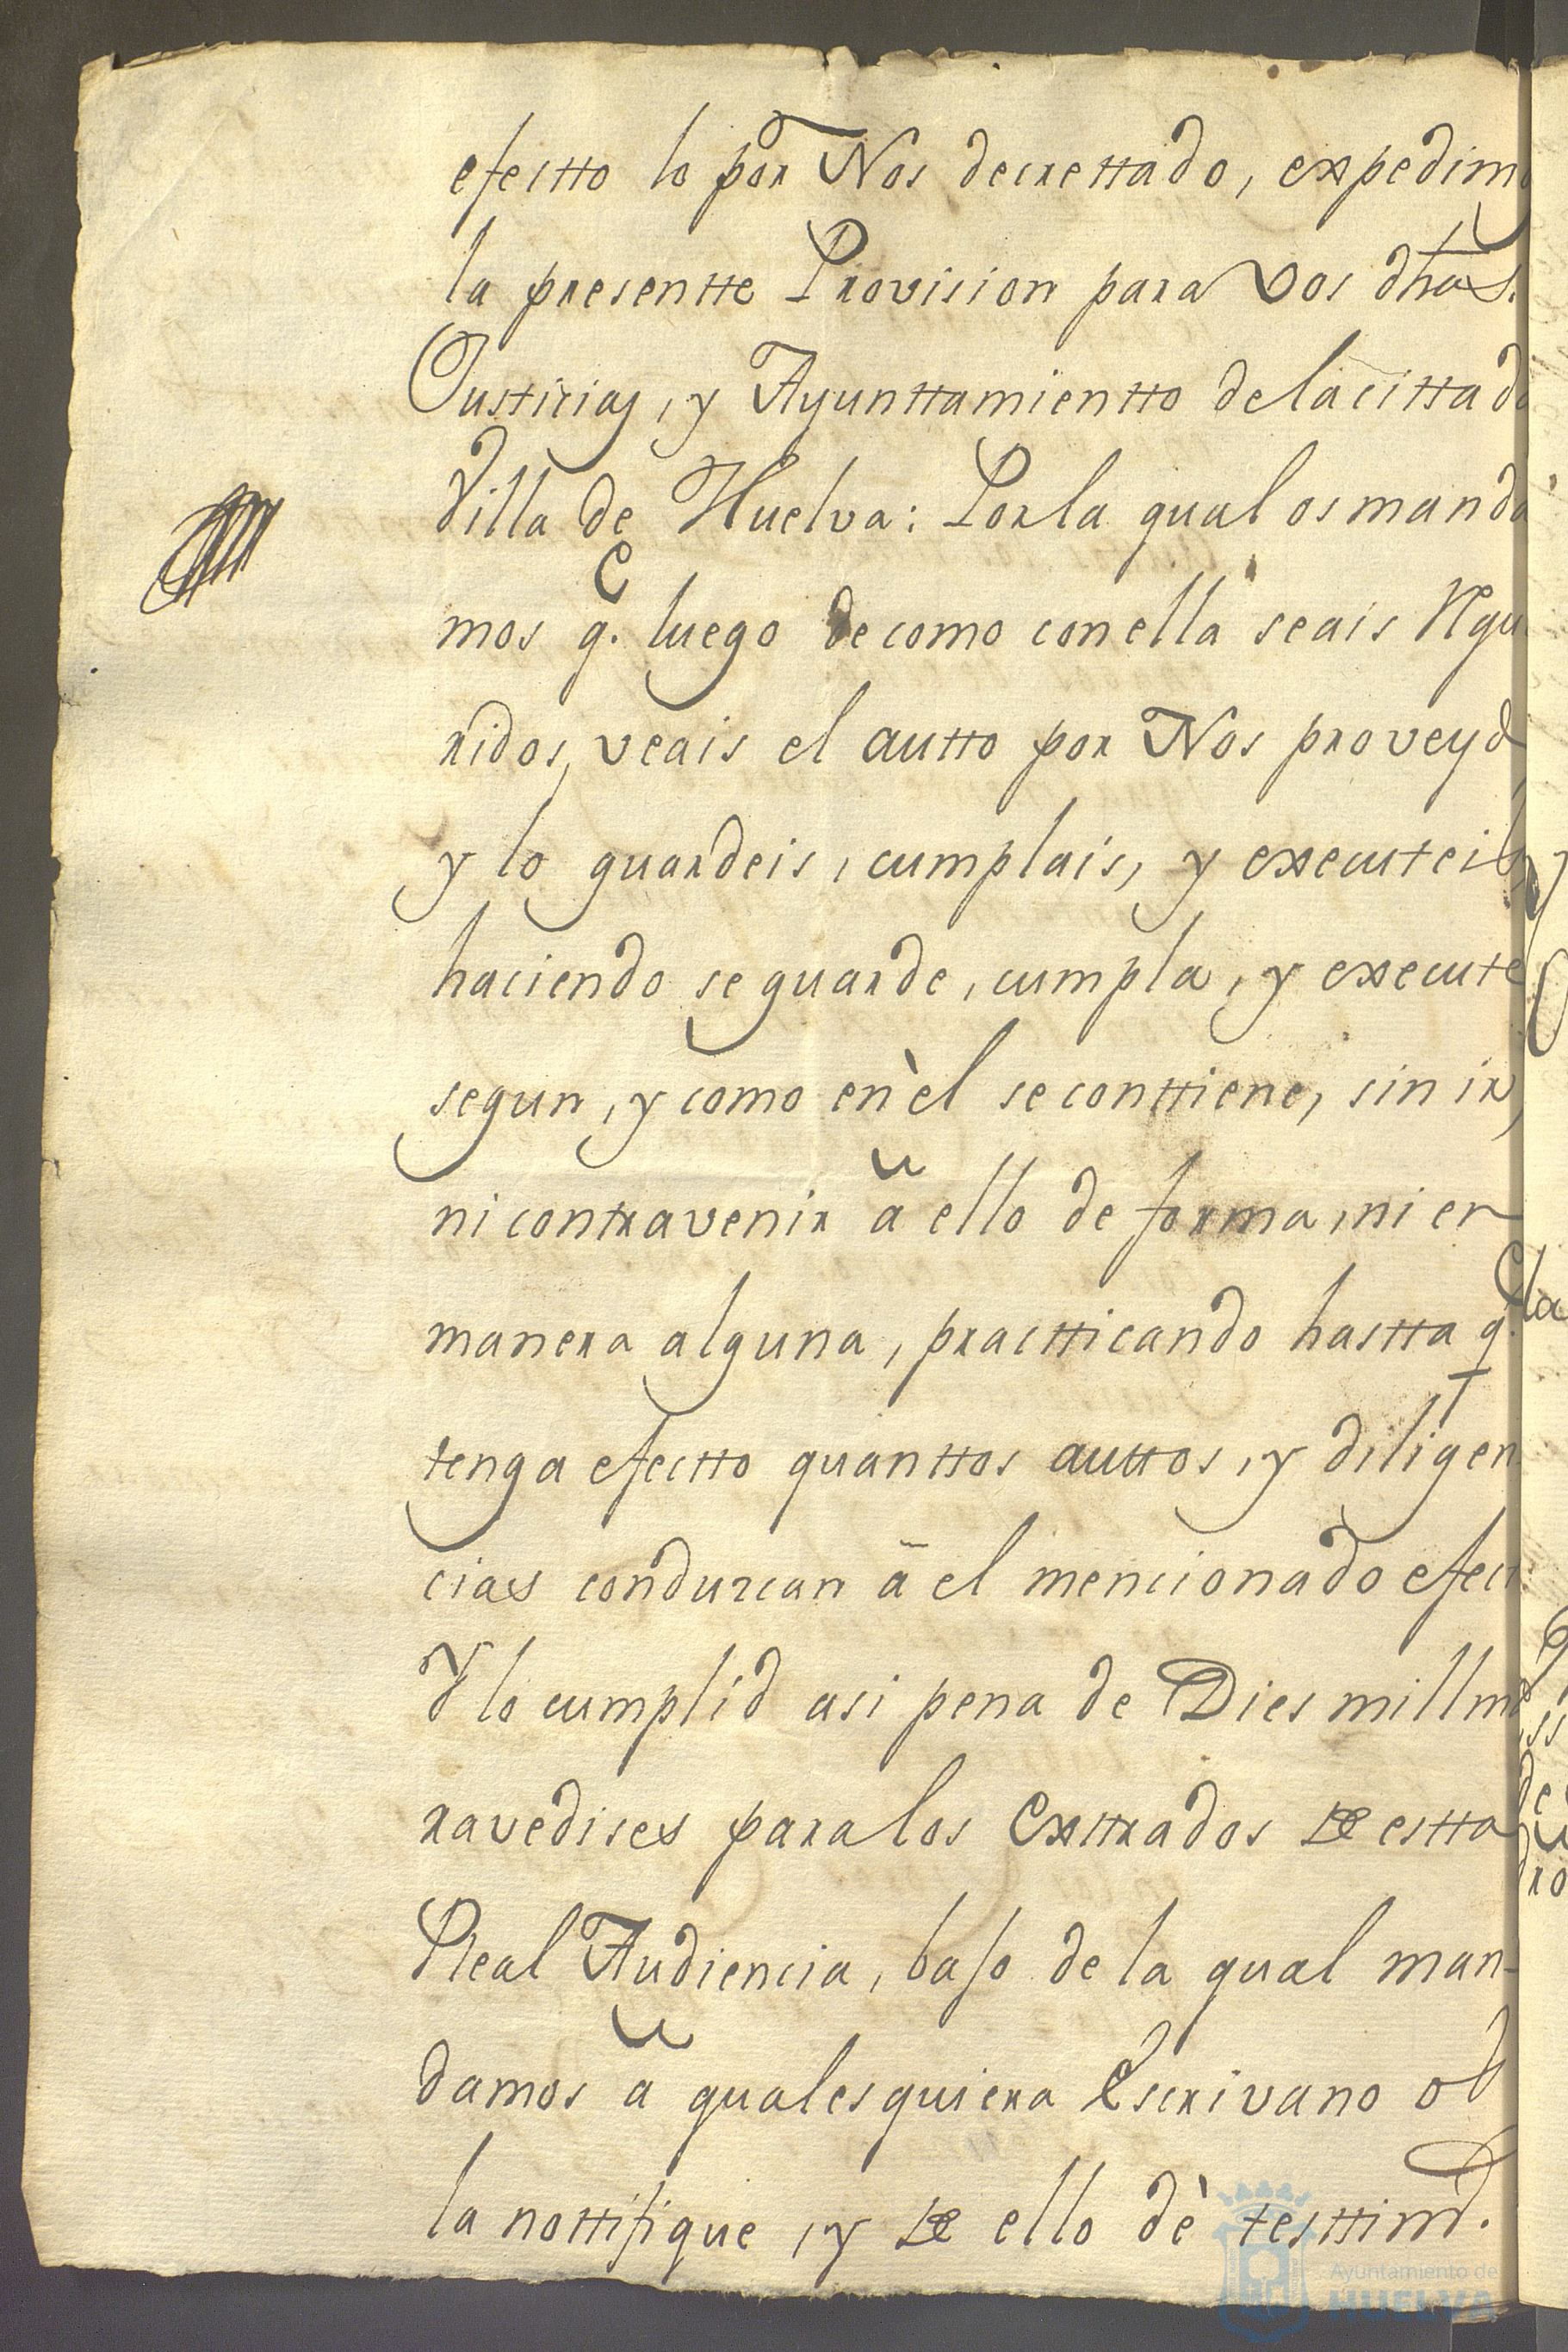 efectto lo por Nos decrettado, expedimo
la presentte Provision para Vos dhas.
Justicias, y Ayunttamientto de la cittada
Villa de Huelva: Por la qual os manda
mos q.e luego de como con ella seais Requ
ridos, veais el autto por Nos proveydo
y lo guardeis, cumplais, y executeis,
haciendo se guarde, cumpla, y execute
segun, y como en èl se conttiene, sin ir,
ni contravenir â ello de forma, ni en
manera alguna, practticando hastta q.e
tenga efectto quanttos auttos, y diligen
cias conduzcan â el mencionado efect
Y lo cumplid asi pena de Dies mill ma
ravedises para los Exttrados de estta
Real Audiencia, bajo de la qual man-
damos â qualesquiera Escrivano os
la nottifique, y de ello dè testtimo.
Ayuntamiento de
HUELVA